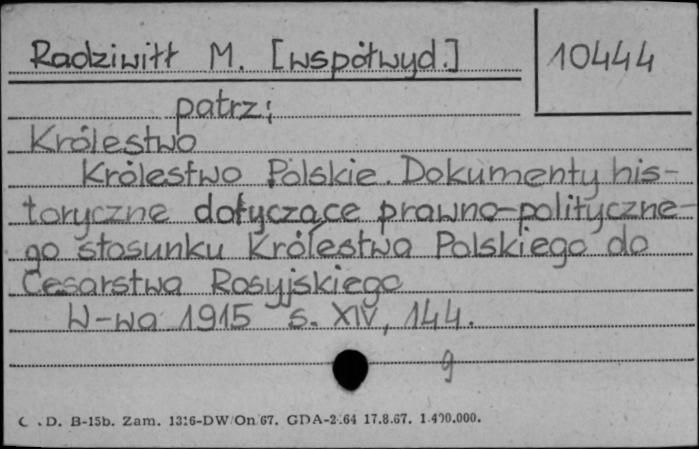 Radziwiłł M. [współwyd.]
10444
patrz:
Królestwo
Królestwo Polskie. Dokumenty his-
toryczne dotyczące prawno-polityczne-
go stosunku Królestwa Polskiego do
Cesarstwa Rosyjskiego
W-wa 1915 s. XIV, 144.
g
C.D. B-15b. Zam. 1316-DW/On/67. GDA-2.64 17.8.67. 1.400.000.